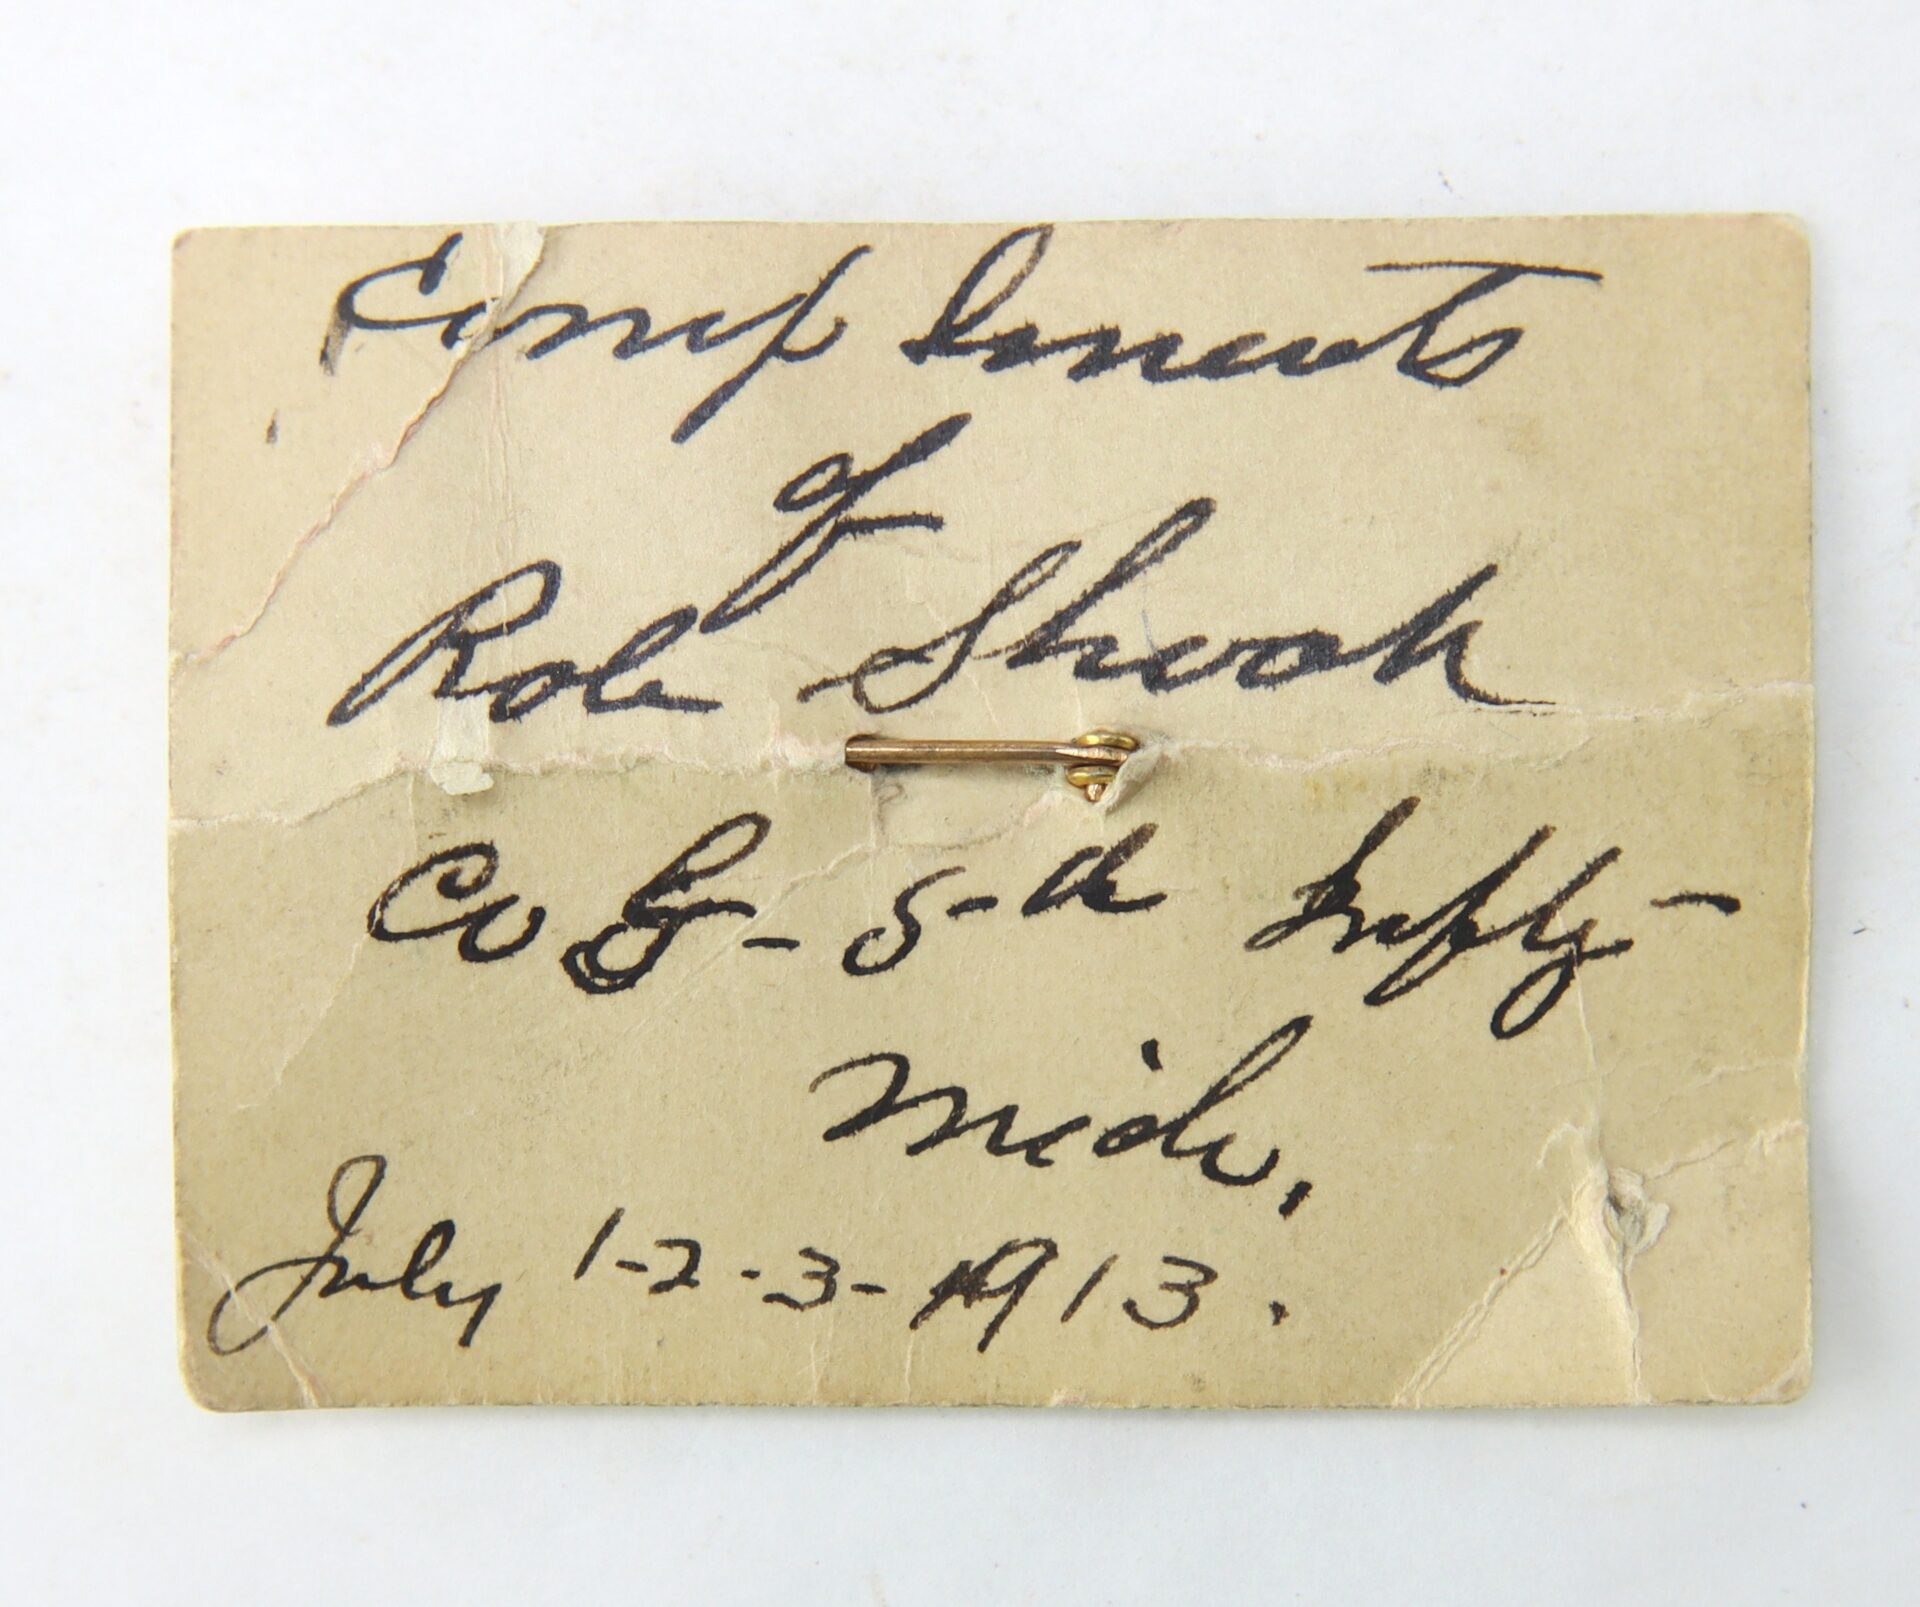 Compliments
of
Rob Shook
Co G - 5-th Infty -
Mich.
July 1-2-3-1913.